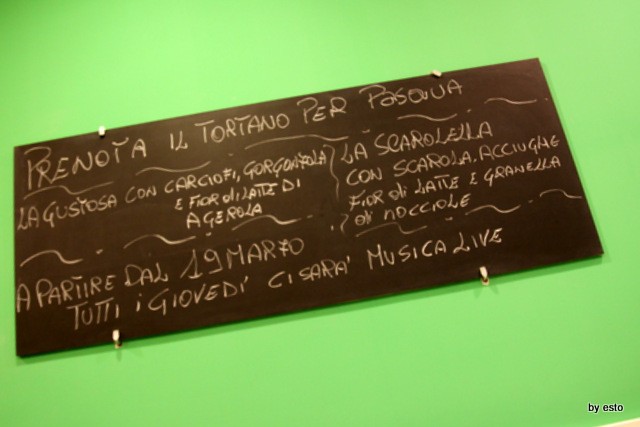 PRENOTA IL TORTANO PER PASQUA
LA GUSTOSA CON CARCIOFI, GORGONZOLA
E FIOR di LATTE DI
AGEROLA
LA SCAROLELLA
CON SCAROLA, ACCIUGHE
FIOR di LATTE E GRANELLA
di NOCCIOLE
A PARTIRE DAL 19 MARZO
TUTTI i GIOVEDI' CI SARA' MUSICA LIVE
by esto